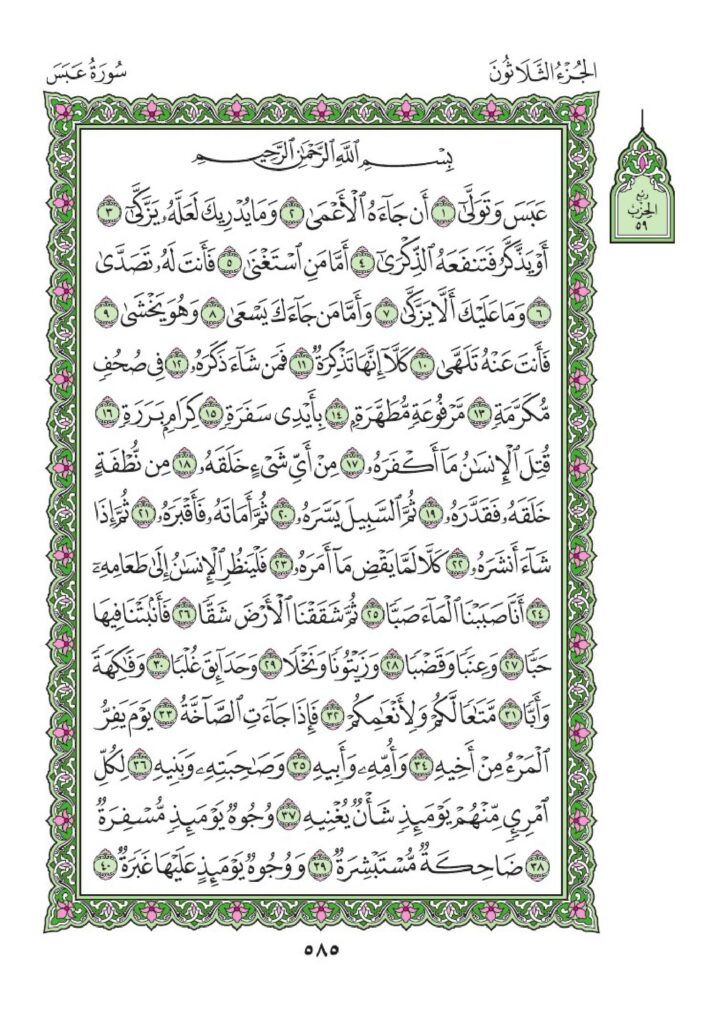 الجُزْءُ الثَّلَاثُونَ
سُورَةُ عَبَسَ
رُبع
الحِزْب
٥٩
بِسْمِ ٱللَّهِ ٱلرَّحْمَٰنِ ٱلرَّحِيمِ
عَبَسَ وَتَوَلَّىٰٓ ١ أَن جَآءَهُ ٱلْأَعْمَىٰ ٢ وَمَا يُدْرِيكَ لَعَلَّهُۥ يَزَّكَّىٰٓ ٣
أَوْ يَذَّكَّرُ فَتَنفَعَهُ ٱلذِّكْرَىٰٓ ٤ أَمَّا مَنِ ٱسْتَغْنَىٰ ٥ فَأَنتَ لَهُۥ تَصَدَّىٰ
٦ وَمَا عَلَيْكَ أَلَّا يَزَّكَّىٰ ٧ وَأَمَّا مَن جَآءَكَ يَسْعَىٰ ٨ وَهُوَ يَخْشَىٰ ٩
فَأَنتَ عَنْهُ تَلَهَّىٰ ١٠ كَلَّآ إِنَّهَا تَذْكِرَةٌ ١١ فَمَن شَآءَ ذَكَرَهُۥ ١٢ فِى صُحُفٍ
مُّكَرَّمَةٍ ١٣ مَّرْفُوعَةٍ مُّطَهَّرَةٍۭ ١٤ بِأَيْدِى سَفَرَةٍ ١٥ كِرَامٍۭ بَرَرَةٍ ١٦
قُتِلَ ٱلْإِنسَٰنُ مَآ أَكْفَرَهُۥ ١٧ مِنْ أَىِّ شَىْءٍ خَلَقَهُۥ ١٨ مِن نُّطْفَةٍ
خَلَقَهُۥ فَقَدَّرَهُۥ ١٩ ثُمَّ ٱلسَّبِيلَ يَسَّرَهُۥ ٢٠ ثُمَّ أَمَاتَهُۥ فَأَقْبَرَهُۥ ٢١ ثُمَّ إِذَا
شَآءَ أَنشَرَهُۥ ٢٢ كَلَّا لَمَّا يَقْضِ مَآ أَمَرَهُۥ ٢٣ فَلْيَنظُرِ ٱلْإِنسَٰنُ إِلَىٰ طَعَامِهِۦٓ
٢٤ أَنَّا صَبَبْنَا ٱلْمَآءَ صَبًّا ٢٥ ثُمَّ شَقَقْنَا ٱلْأَرْضَ شَقًّا ٢٦ فَأَنۢبَتْنَا فِيهَا
حَبًّا ٢٧ وَعِنَبًا وَقَضْبًا ٢٨ وَزَيْتُونًا وَنَخْلًا ٢٩ وَحَدَآئِقَ غُلْبًا ٣٠ وَفَٰكِهَةً
وَأَبًّا ٣١ مَّتَٰعًا لَّكُمْ وَلِأَنْعَٰمِكُمْ ٣٢ فَإِذَا جَآءَتِ ٱلصَّآخَّةُ ٣٣ يَوْمَ يَفِرُّ
ٱلْمَرْءُ مِنْ أَخِيهِ ٣٤ وَأُمِّهِۦ وَأَبِيهِ ٣٥ وَصَٰحِبَتِهِۦ وَبَنِيهِ ٣٦ لِكُلِّ
ٱمْرِئٍ مِّنْهُمْ يَوْمَئِذٍ شَأْنٌ يُغْنِيهِ ٣٧ وُجُوهٌ يَوْمَئِذٍ مُّسْفِرَةٌ
٣٨ ضَاحِكَةٌ مُّسْتَبْشِرَةٌ ٣٩ وَوُجُوهٌ يَوْمَئِذٍ عَلَيْهَا غَبَرَةٌ ٤٠
٥٨٥